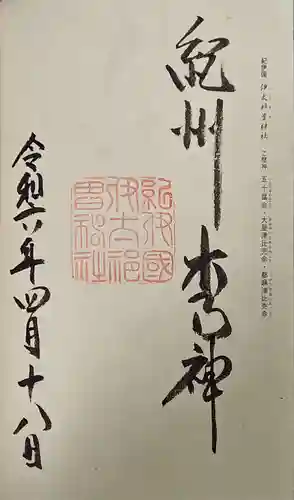 紀伊國 伊太祁曽神社 ご祭神 五十猛命・大屋津比売命・都麻津比売命
紀州 木の神
紀伊國
伊太祁
曽神社
令和六年四月十八日